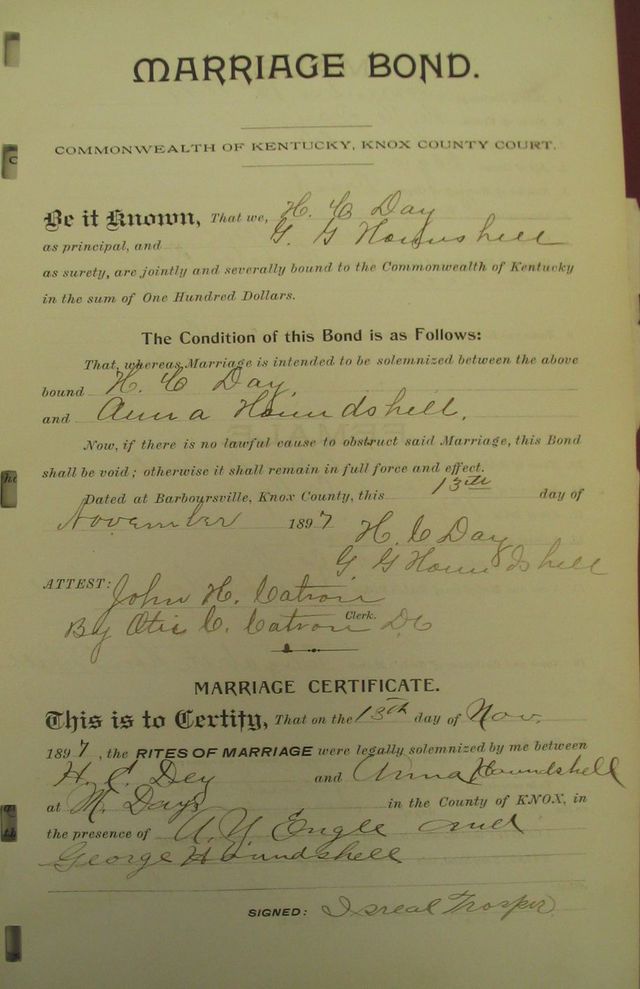 MARRIAGE BOND.
COMMONWEALTH OF KENTUCKY, KNOX COUNTY COURT.
Be it Known, That we, H. C Day
as principal, and G. G Hounshell
as surety, are jointly and severally bound to the Commonwealth of Kentucky
in the sum of One Hundred Dollars.
The Condition of this Bond is as Follows:
That, whereas Marriage is intended to be solemnized between the above
bound H. C Day,
and Anna Houndshell.
Now, if there is no lawful cause to obstruct said Marriage, this Bond
shall be void; otherwise it shall remain in full force and effect.
Dated at Barboursville, Knox County, this 13th day of
November 1897 H. C Day
G G Houndshell
ATTEST: John H. Catron
Clerk.
By Otis C. Catron DC
MARRIAGE CERTIFICATE.
This is to Certify, That on the 13th day of Nov.
1897, the RITES OF MARRIAGE were legally solemnized by me between
H. C Dey and Anna Houndshell
at M. Days in the County of KNOX, in
the presence of A. Y Engle and
George Houndshell
SIGNED: Isreal Trosper